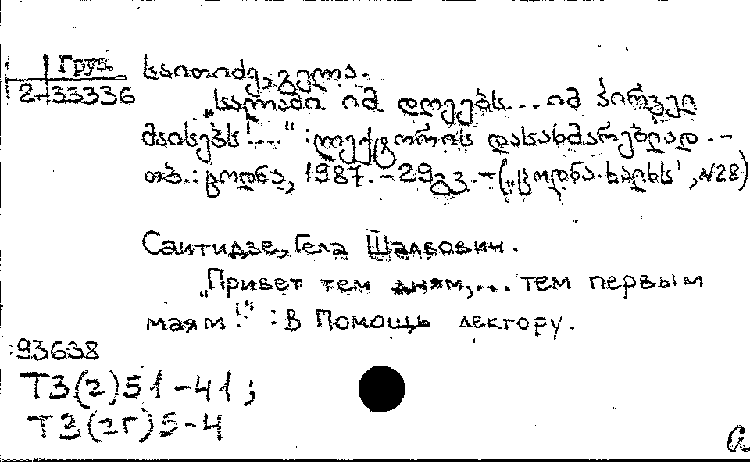 Груз
2-33336
საითიძე, გელა.
„სალამი იმ დღეებს... იმ პირველ
მაისებს!...“ : ლექტორის დასახმარებლად. -
თბ.: ცოდნა, 1987. - 29გვ. - („ცოდნა-ხალხს“, №28)
Саитидзе, Гела Шалвович.
„Привет тем дням,... тем первым
маям!“ : В помощь лектору.
93638
Т3(2)51-41;
Т3(2Г)5-4